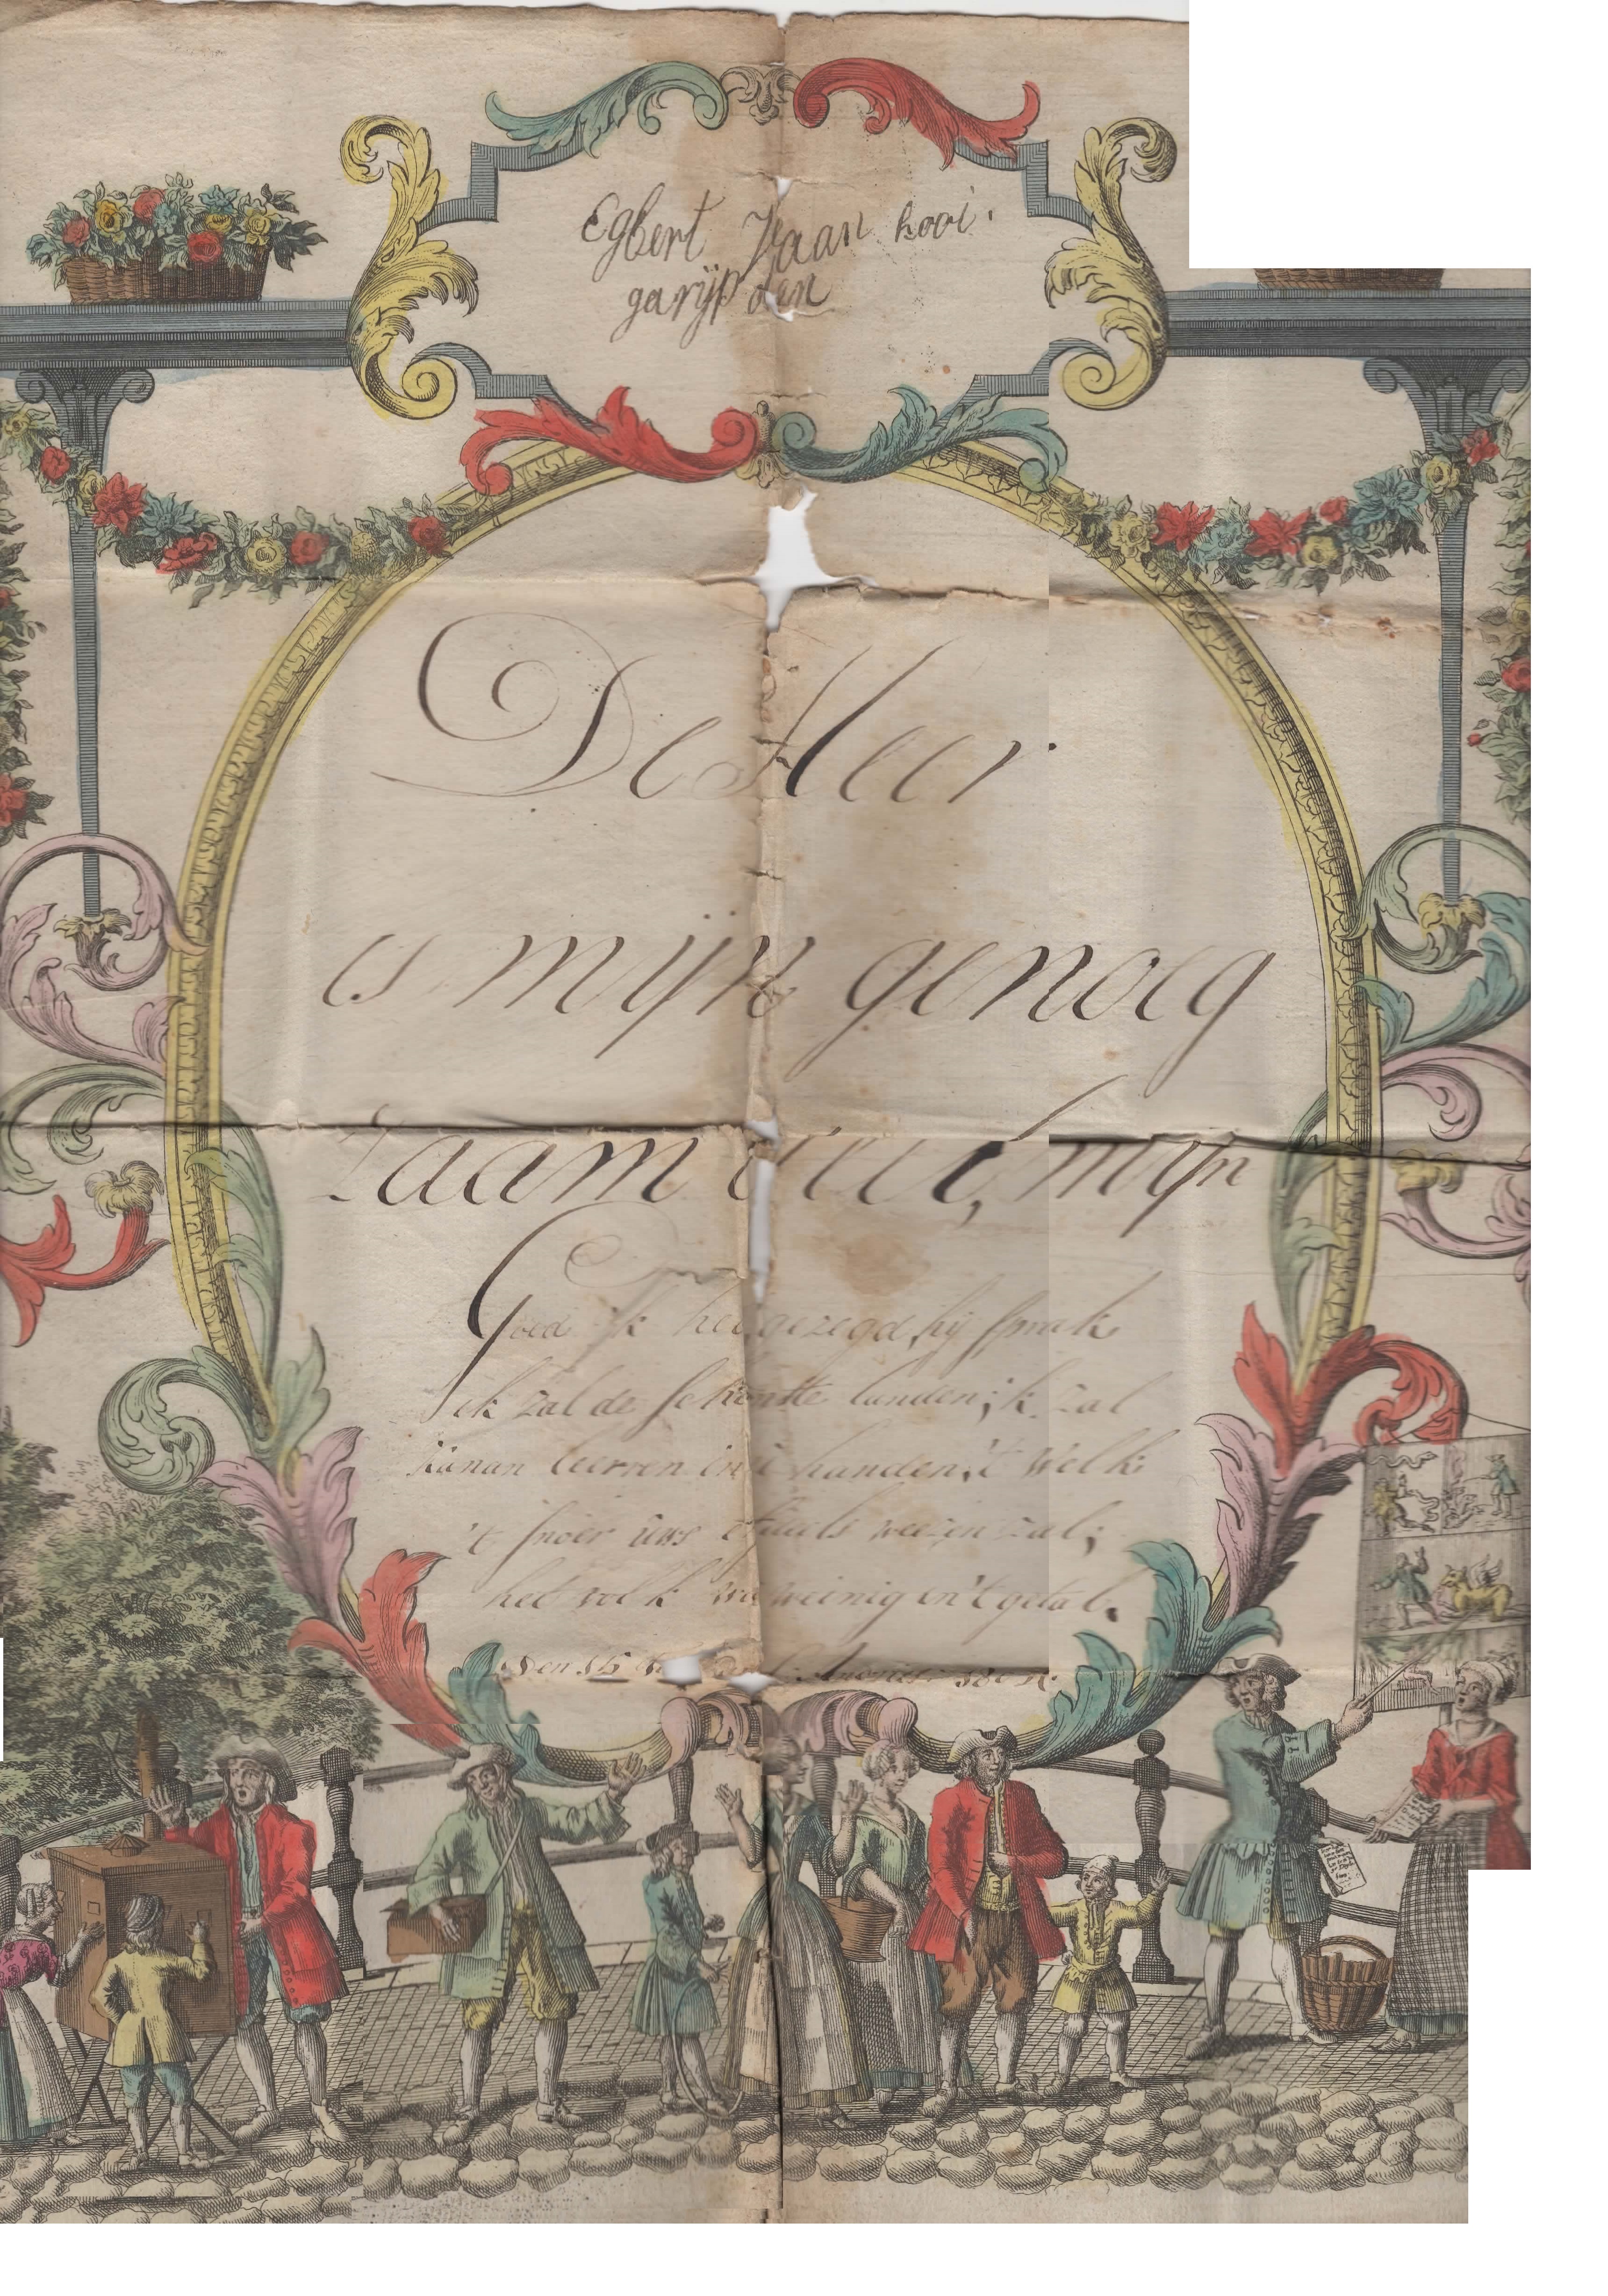 Egbert Jaan kooi
garijp den
De Heer
is mijn genoeg
zaam deel, mijn
Goed ik heb gezegd, hij sprak
ik zal de schonste landen; ik zal
kanan leeren in i handen, 't Welk
't snoer uws weezen zal;
het volk was weinig in 't getal.
Den 15